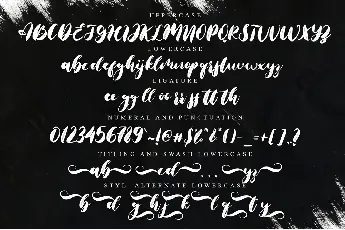 UPPERCASE
ABCDEFGHIJKLMNOPQRSTUVWXYZ
LOWERCASE
abcdefghijklmnopqrstuvwxyz
LIGATURE
ee gg ll oo rr ss tt th
NUMERAL AND PUNCTUATION
0123456789~!@#$%^&*()-_=+[];,.?
TITLING AND SWASH LOWERCASE
ab cd ... yz
STYL. ALTERNATE LOWERCASE
b d g h k l q t y